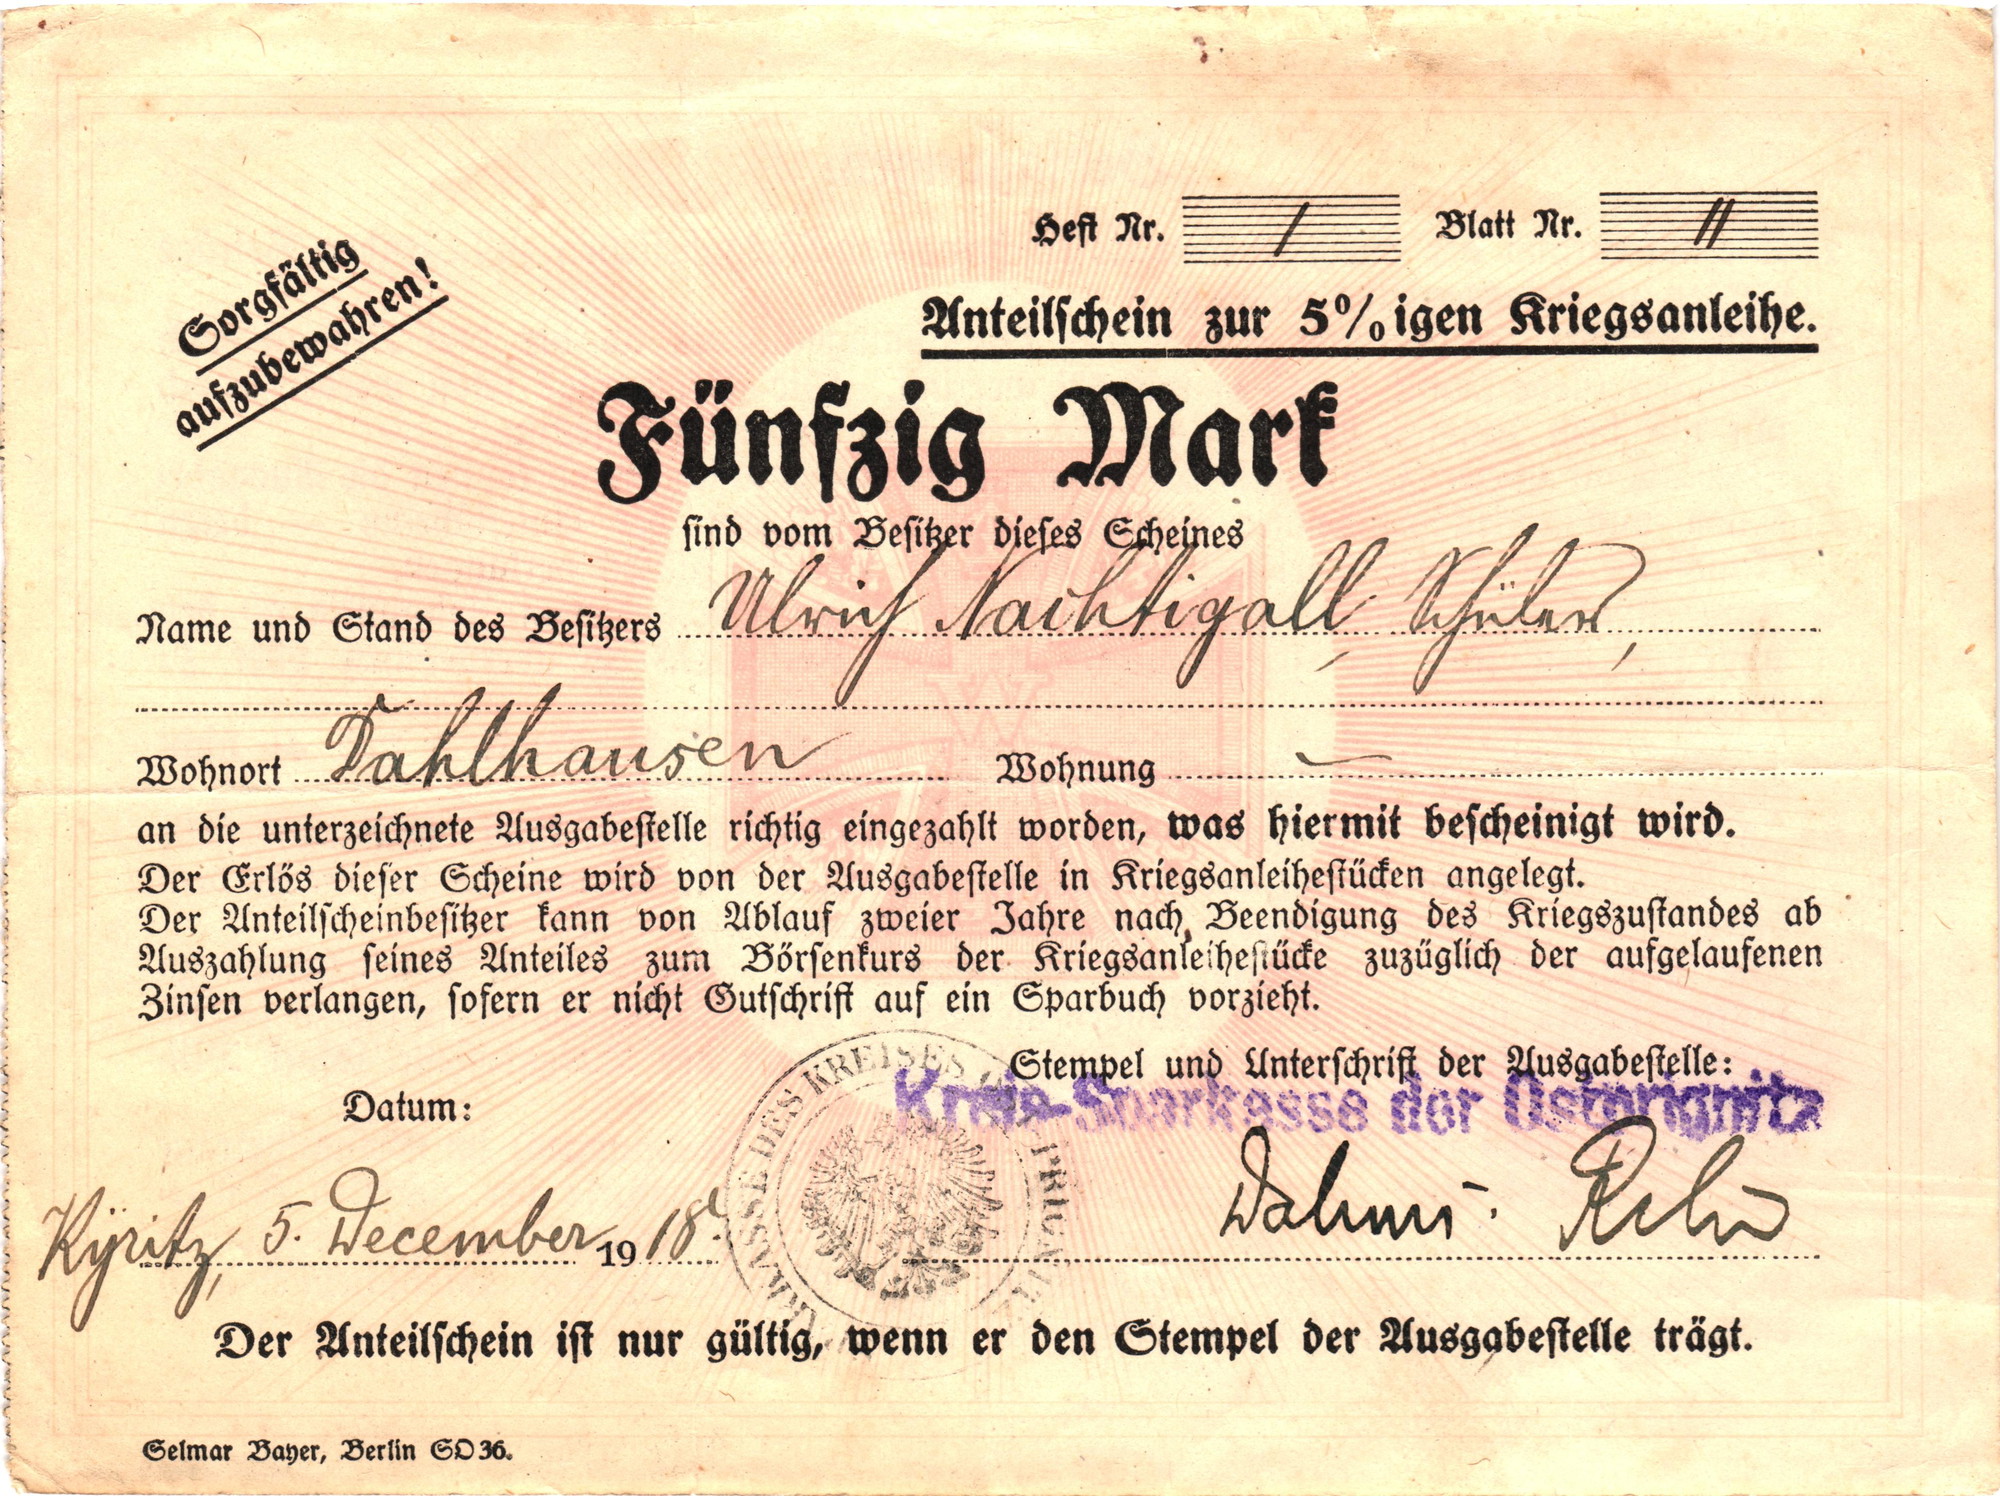 Heft Nr. 1 Blatt Nr. 11
Sorgfältig
aufzubewahren!
Anteilschein zur 5%igen Kriegsanleihe.
Fünfzig Mark
sind vom Besitzer dieses Scheines
Name und Stand des Besitzers Ulrich Nachtigall, Schüler,
Wohnort Dahlhausen Wohnung –
an die unterzeichnete Ausgabestelle richtig eingezahlt worden, was hiermit bescheinigt wird.
Der Erlös dieser Scheine wird von der Ausgabestelle in Kriegsanleihestücken angelegt.
Der Anteilscheinbesitzer kann von Ablauf zweier Jahre nach Beendigung des Kriegszustandes ab
Auszahlung seines Anteiles zum Börsenkurs der Kriegsanleihestücke zuzüglich der aufgelaufenen
Zinsen verlangen, sofern er nicht Gutschrift auf ein Sparbuch vorzieht.
Stempel und Unterschrift der Ausgabestelle:
Kreis-Sparkasse der Ostprignitz
Datum:
Kyritz, 5. December 1918.
Der Anteilschein ist nur gültig, wenn er den Stempel der Ausgabestelle trägt.
Selmar Bayer, Berlin SO 36.
W
DES KREISES